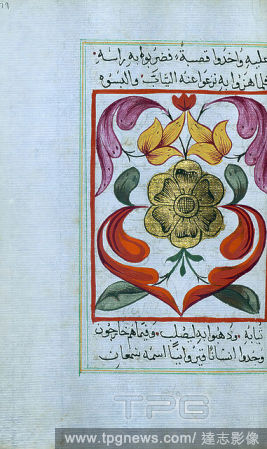 عليه واخذوا قصبة، فضربوا به راسه،
فلما هزوا به نزعوا عنه الثياب والبسوه
ثيابه، ودهبوا به ليصلب، وفيما هم خارجون
وجدوا انسانا قيروانيا اسمه سمعان
TPG
www.tpgnews.com/ 達志影像